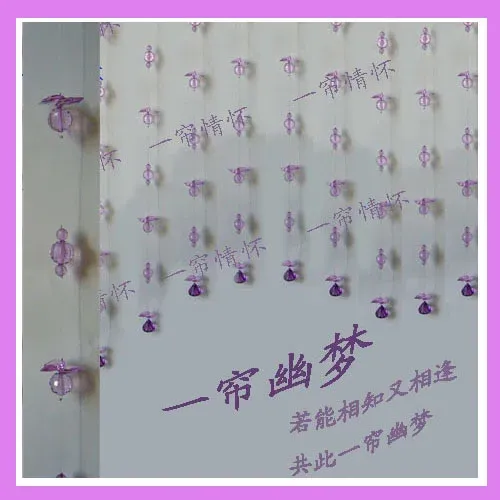 一帘情怀
一帘情怀
情怀
一帘情怀
一帘情怀
情怀
一帘幽梦
若能相知又相逢
共此一帘幽梦